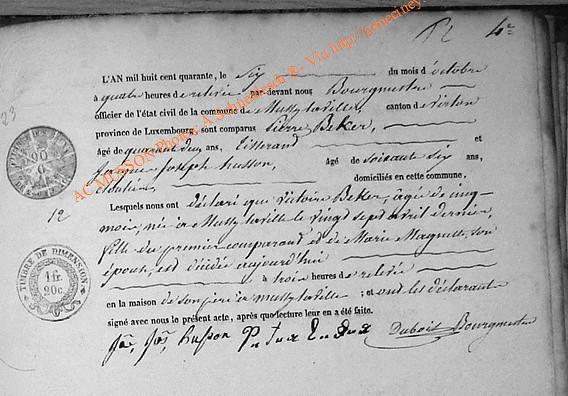 4e
L'AN mil huit cent quarante, le Six du mois d'octobre
à quatre heures de relevée par-devant nous Bourgmestre
officier de l'état civil de la commune de Mussy la ville, canton de Virton
province de Luxembourg, sont comparus Pierre Beker,
Agé de quarante deux ans, Tisserand et
Jacques Joseph husson, Agé de soixante six ans,
domiciliés en cette commune,
Lesquels nous ont déclaré que Victoire Beker, âgée de cinq
mois, née à Mussy la ville le vingt sept avril dernier,
fille du premier comparant et de Marie Magnette, son
épouse, est décédée aujourd'hui
à trois heures de relevée
en la maison de son père à Mussy la ville ; et ont les déclarants
signé avec nous le présent acte, après que lecture leur en a été faite.
husson
Dubois Bourgmestre
23
12
TIMBRE DE DIMENSION
1 fr.
20c.
AC MUSSON Photos A. Schneebach ® Via http://geneciney